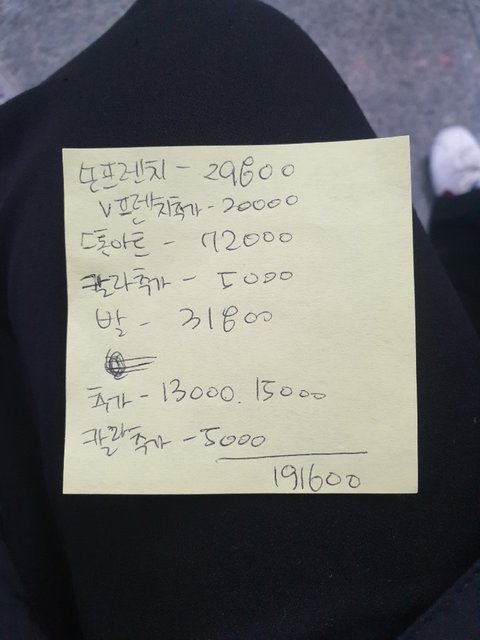 손프렌치 - 29800
V프렌치추가 - 20000
스톤아트 - 72000
칼라추가 - 5000
발 - 31800
추가 - 13000. 15000
칼라추가 - 5000
191600